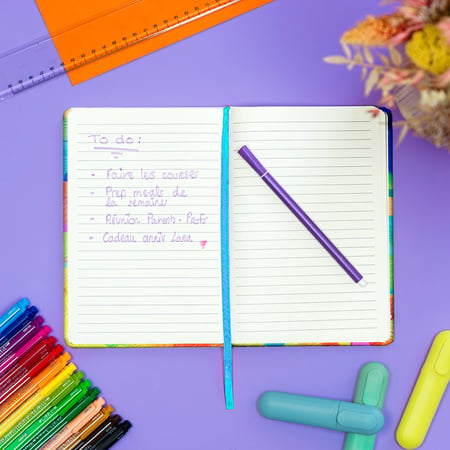 To do :
- Faire les courses
- Prep meals de
la semaine
- Réunion Parents - Profs
- Cadeau anniv Lara